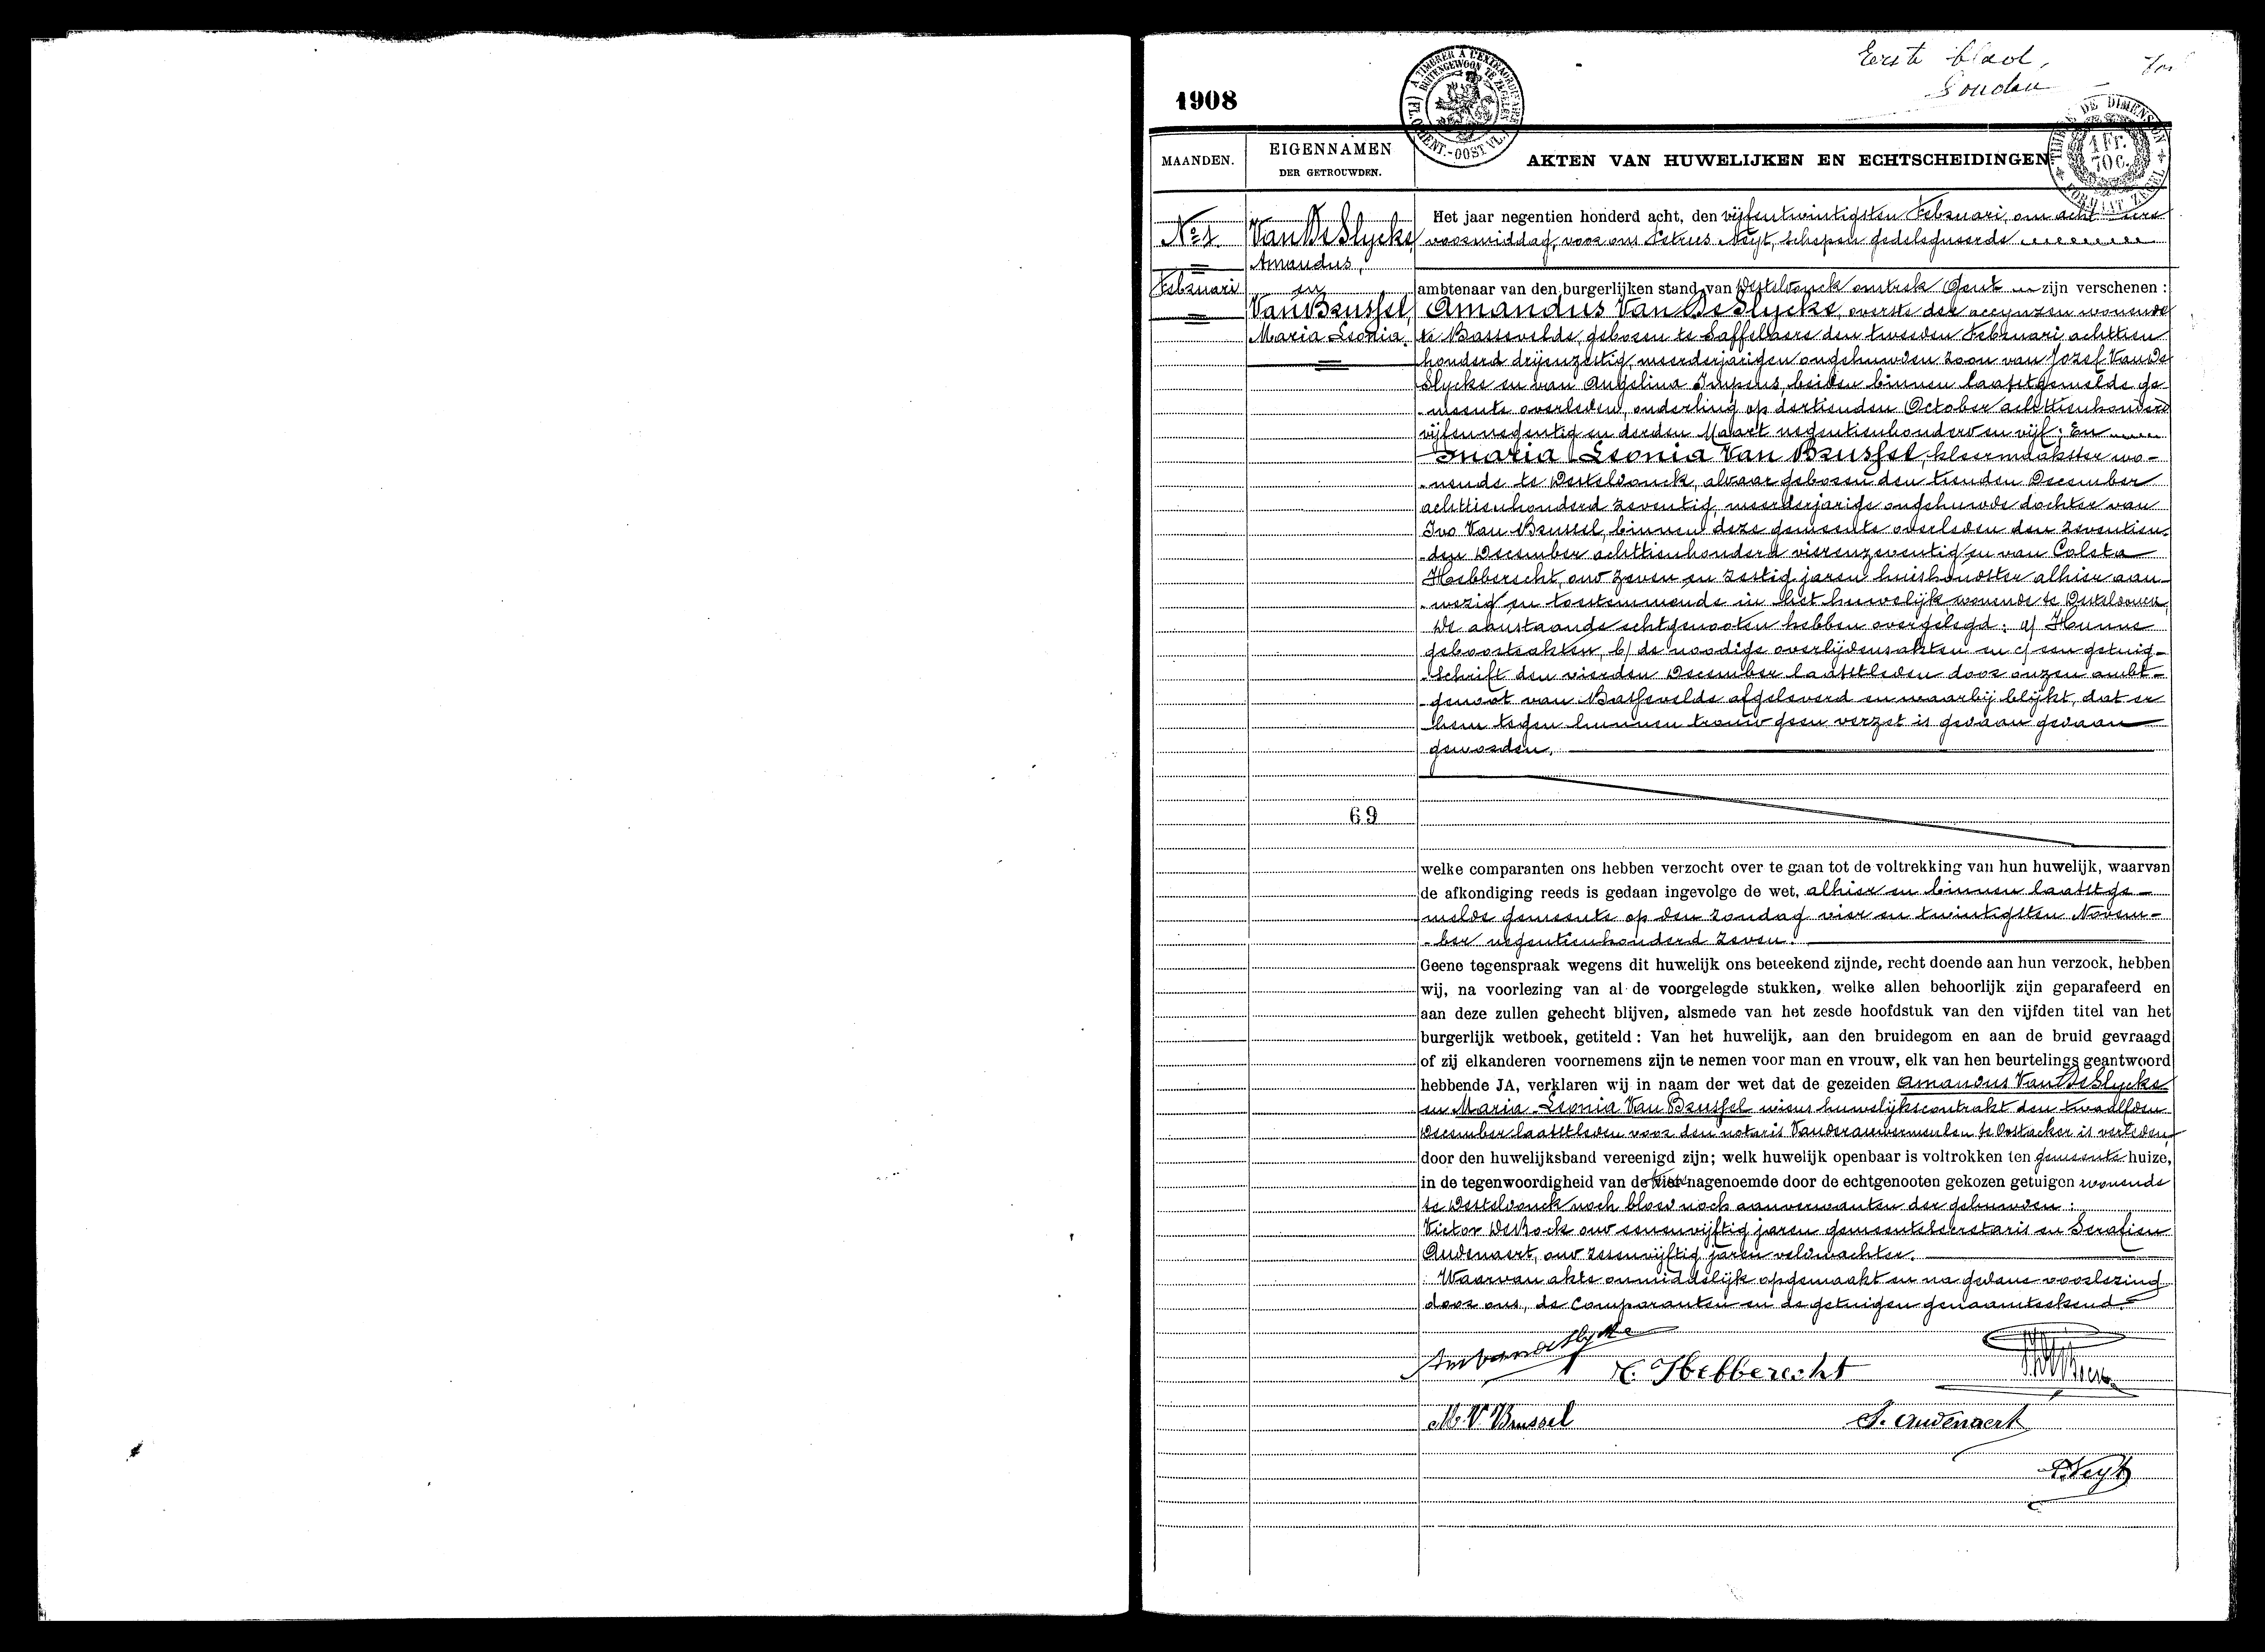 Eerste blad,
1908
A TIMBRER A L'EXTRAORDINAIRE
BUITENGEWOON TE ZEGELEN
(FL. ORIENT.-OOST VL.)
TIMBRE DE DIMENSION
1 Fr.
70 C.
FORMAAT ZEGEL
MAANDEN.
EIGENNAMEN
DER GETROUWDEN.
AKTEN VAN HUWELIJKEN EN ECHTSCHEIDINGEN
No 1
Februari
Van De Slycke,
Amandus,
en
Van Brussel,
Maria Leonia.
Het jaar negentien honderd acht, den vijfentwintigsten Februari, om acht ure
voormiddag, voor ons Petrus Neyt, schepen gedelegueerde
ambtenaar van den burgerlijken stand van Desteldonck omtrek Gent zijn verschenen :
Amandus Van De Slycke, overste der accynzen wonende
te Bassevelde, geboren te Saffelaere den tweeden Februari achttien
honderd drijenzestig, meerderjarigen ongehuwden zoon van Jozef Van De
Slycke en van Angelina Impens, beiden binnen laatstgemelde ge-
-meente overleden, onderling op dertienden October achttienhonderd
vijfennegentig en derden Maart negentienhonderd en vijf; En
Maria Leonia Van Brussel, kleermaakster wo-
-nende te Desteldonck, aldaar geboren den tienden December
achttienhonderd zeventig, meerderjarige ongehuwde dochter van
Ivo Van Brussel, binnen deze gemeente overleden den zeventien-
-den December achttienhonderd vierenzeventig en van Coleta
Hebberecht, oud zeven en zestig jaren huishoudster alhier aan-
-wezig en toestemmende in het huwelijk, wonende te Desteldonck,
De aanstaande echtgenooten hebben overgelegd: a/ Hunne
geboorteakten, b/ de noodige overlijdensakten en c/ een getuig-
-schrift den vierden December laatstleden door onzen ambt-
-genoot van Bassevelde afgeleverd en waarbij blijkt, dat er
hem tegen hunnen trouw geen verzet is gedaan gedaan
geworden.
69
welke comparanten ons hebben verzocht over te gaan tot de voltrekking van hun huwelijk, waarvan
de afkondiging reeds is gedaan ingevolge de wet, alhier en binnen laatstge-
melde gemeente op den zondag vier en twintigsten Novem-
-ber negentienhonderd zeven.
Geene tegenspraak wegens dit huwelijk ons beteekend zijnde, recht doende aan hun verzoek, hebben
wij, na voorlezing van al de voorgelegde stukken, welke allen behoorlijk zijn geparafeerd en
aan deze zullen gehecht blijven, alsmede van het zesde hoofdstuk van den vijfden titel van het
burgerlijk wetboek, getiteld : Van het huwelijk, aan den bruidegom en aan de bruid gevraagd
of zij elkanderen voornemens zijn te nemen voor man en vrouw, elk van hen beurtelings geantwoord
hebbende JA, verklaren wij in naam der wet dat de gezeiden Amandus Van De Slycke
en Maria Leonia Van Brussel wiens huwelijkscontrakt den twaalfden
December laatstleden voor den notaris Vanderauwermeulen te Oostacker is verleden,
door den huwelijksband vereenigd zijn; welk huwelijk openbaar is voltrokken ten gemeente huize,
in de tegenwoordigheid van de vier nagenoemde door de echtgenooten gekozen getuigen wonende
te Desteldonck noch bloed noch aanverwanten der gehuwden :
Victor De Bock oud eenenvijftig jaren gemeentesecretaris en Serafien
Audenaert, oud zesenvijftig jaren veldwachter.
Waarvan akte onmiddelijk opgemaakt en na gedane voorlezing
door ons, de Comparanten en de getuigen genaamteekend.
Am Vandeslycke
C. Hebberecht
M. V. Brussel
S. Audenaert
P. Neyt